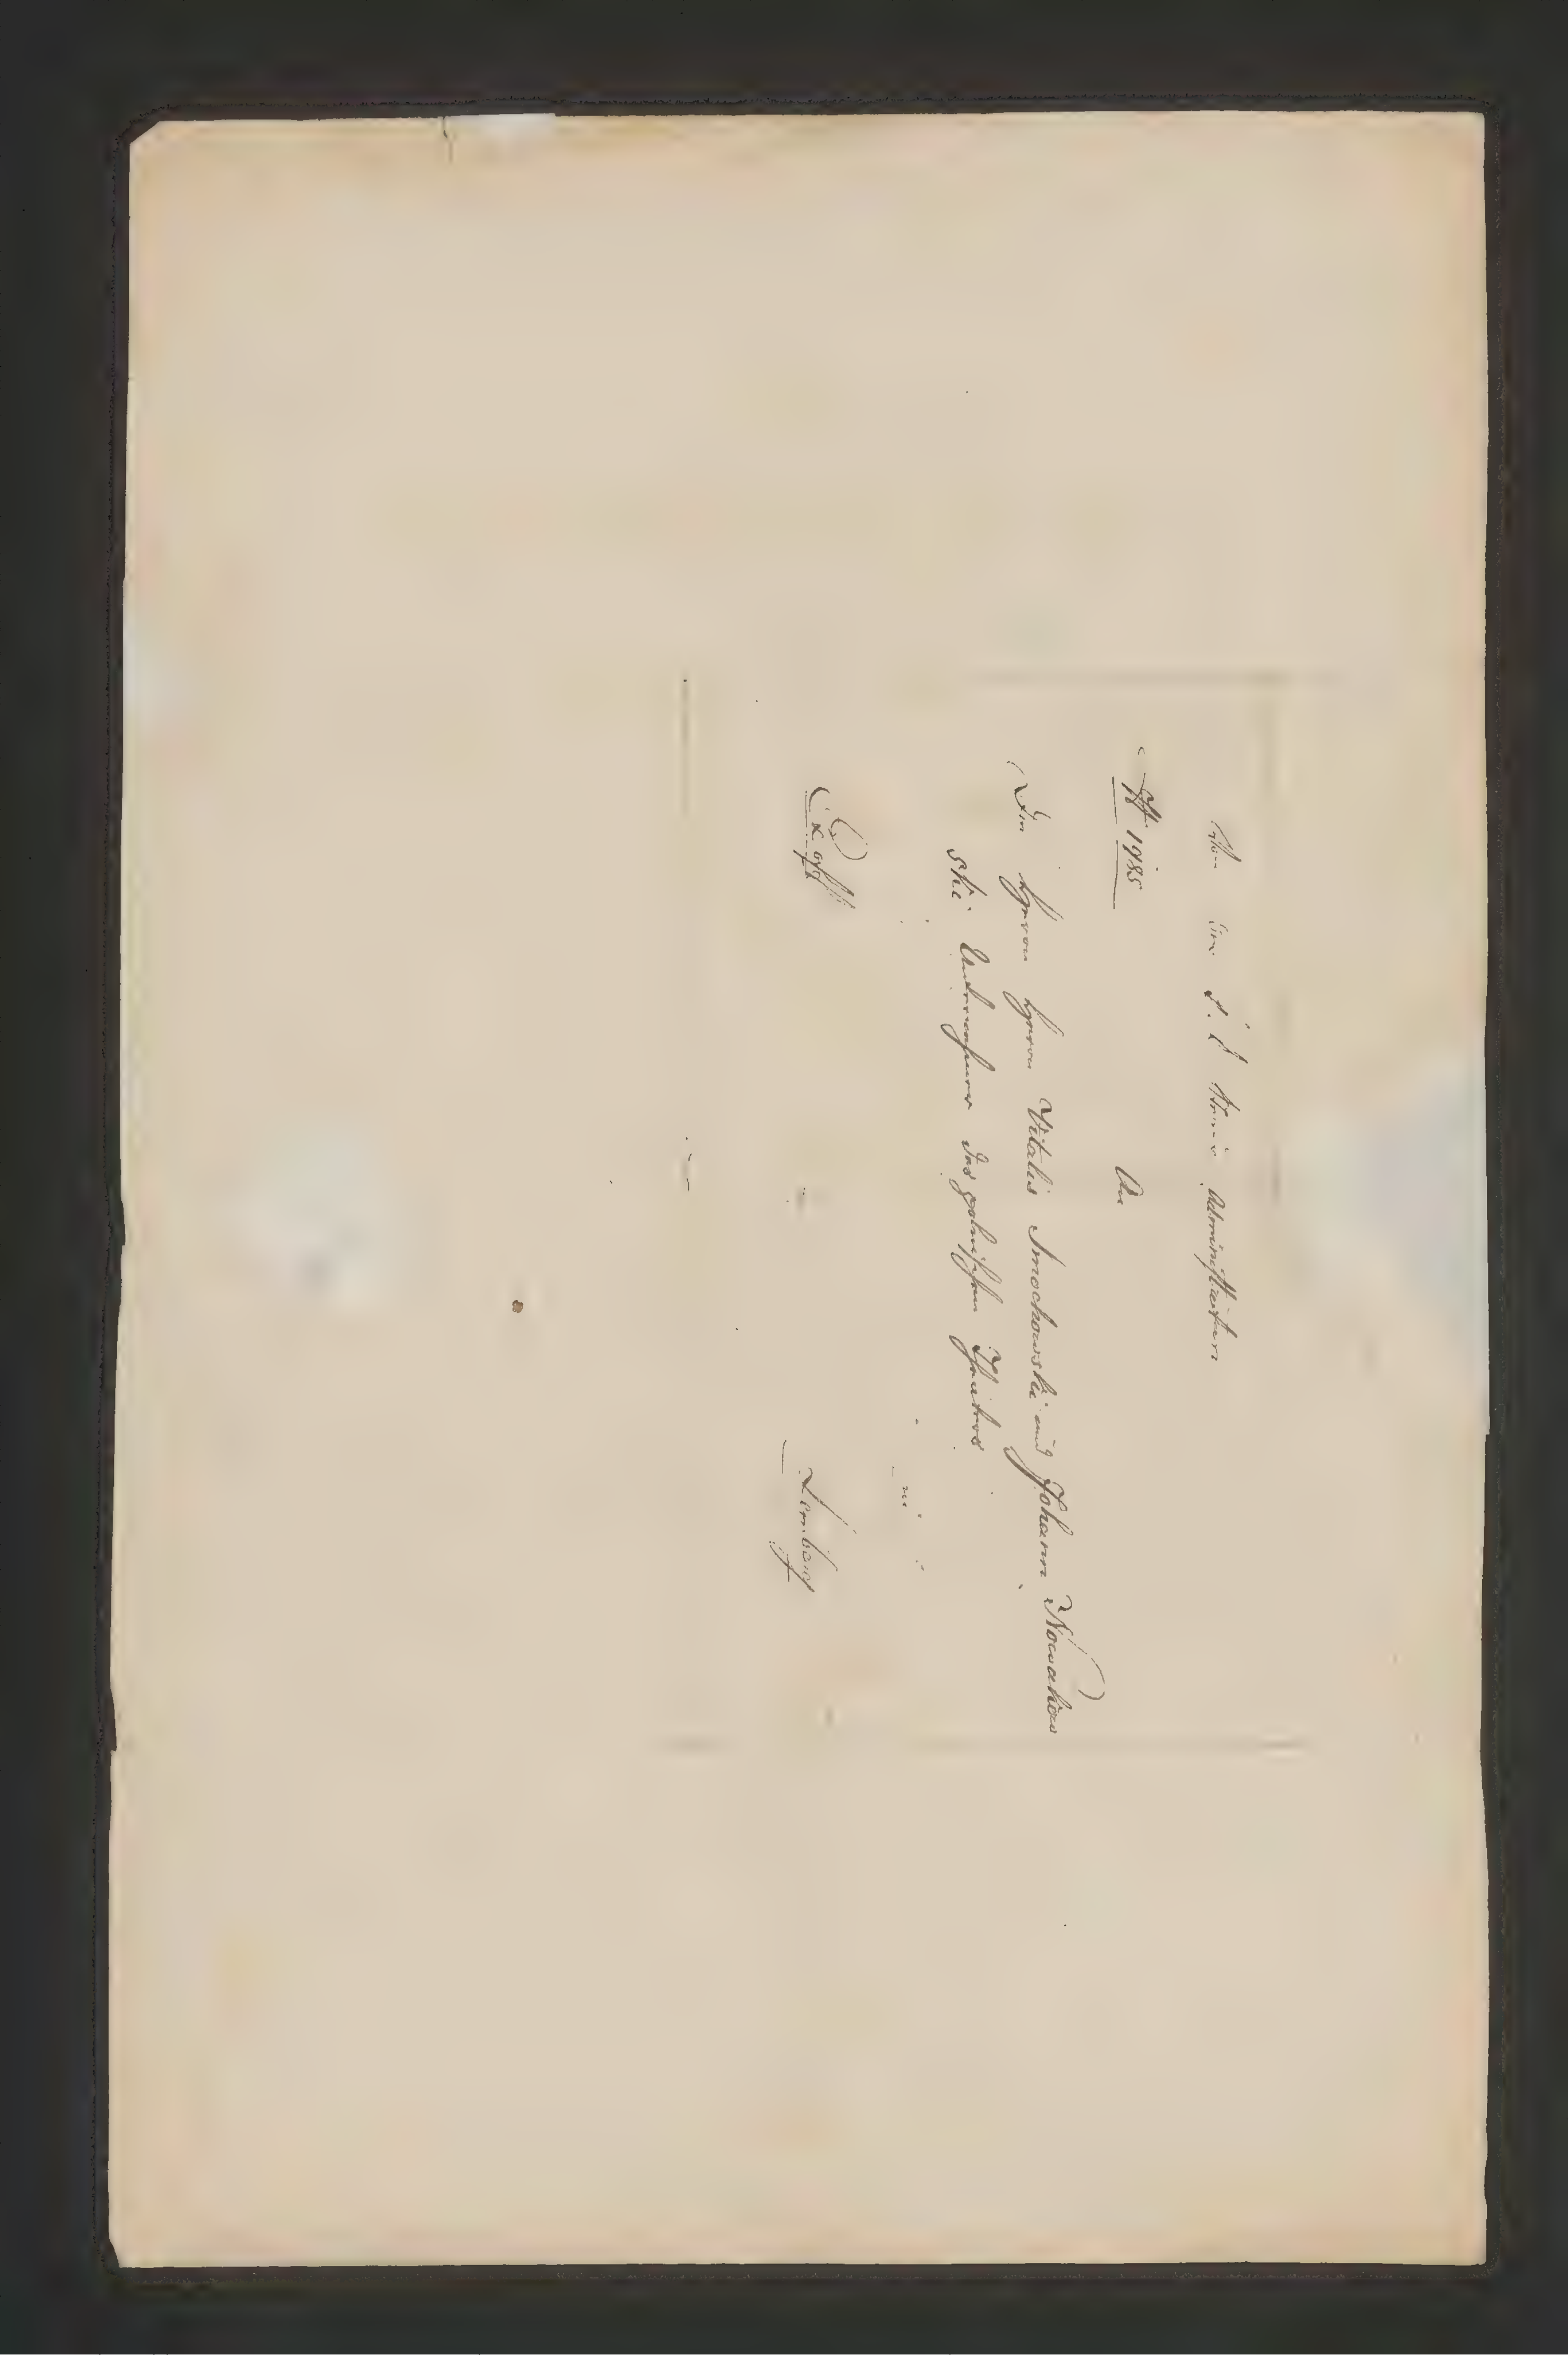 Von der k. k. Administration
№ 1985
An
Die Herrn Herrn Vitalis Smochowski und Johann Nowakow
ski Unternehmer des polnischen Theaters
Ex offo
Lemberg